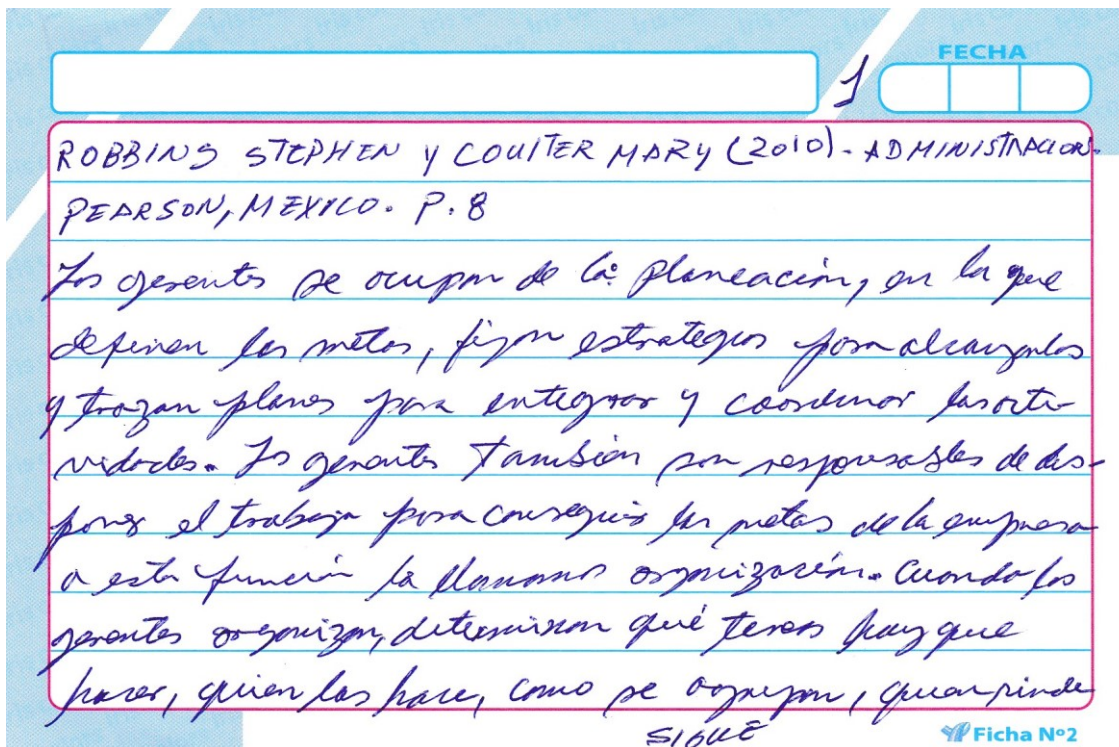 FECHA
1
ROBBINS STEPHEN y COULTER MARY (2010). ADMINISTRACION.
PEARSON, MEXICO. P. 8
Los gerentes se ocupan de la planeación, en la que
definen las metas, fijan estrategias para alcanzarlas
y trazan planes para integrar y coordinar las acti-
vidades. Los gerentes También son responsables de dis-
poner el trabajo para conseguir las metas de la empresa
a esta función la llamamos organización. Cuando los
gerentes organizan, determinan qué tareas hay que
hacer, quien las hace, como se agrupan, quien rinde
SIGUE
Ficha Nº2